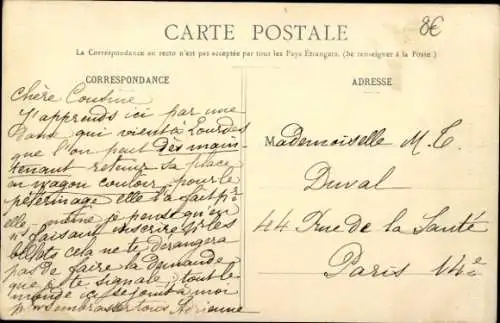 CARTE POSTALE
8€
La Correspondance au recto n'est pas acceptée par tous les Pays Étrangers. (Se renseigner à la Poste)
CORRESPONDANCE
ADRESSE
Chère Cousine
J'apprends ici par une
dame qui vient à Lourdes
que l'on peut dès main
tenant retenir sa place
en wagon couloir pour le
pèlerinage elle l'a fait pr
elle, même je pense qu'en
faisant inscrire les
billets cela ne te dérangera
pas de faire la demande
que je te signale, tout le
monde ici se joint à moi
pr vous embrasser tous Adrienne
Mademoiselle M. C.
Duval
44 Rue de la Santé
Paris 14e